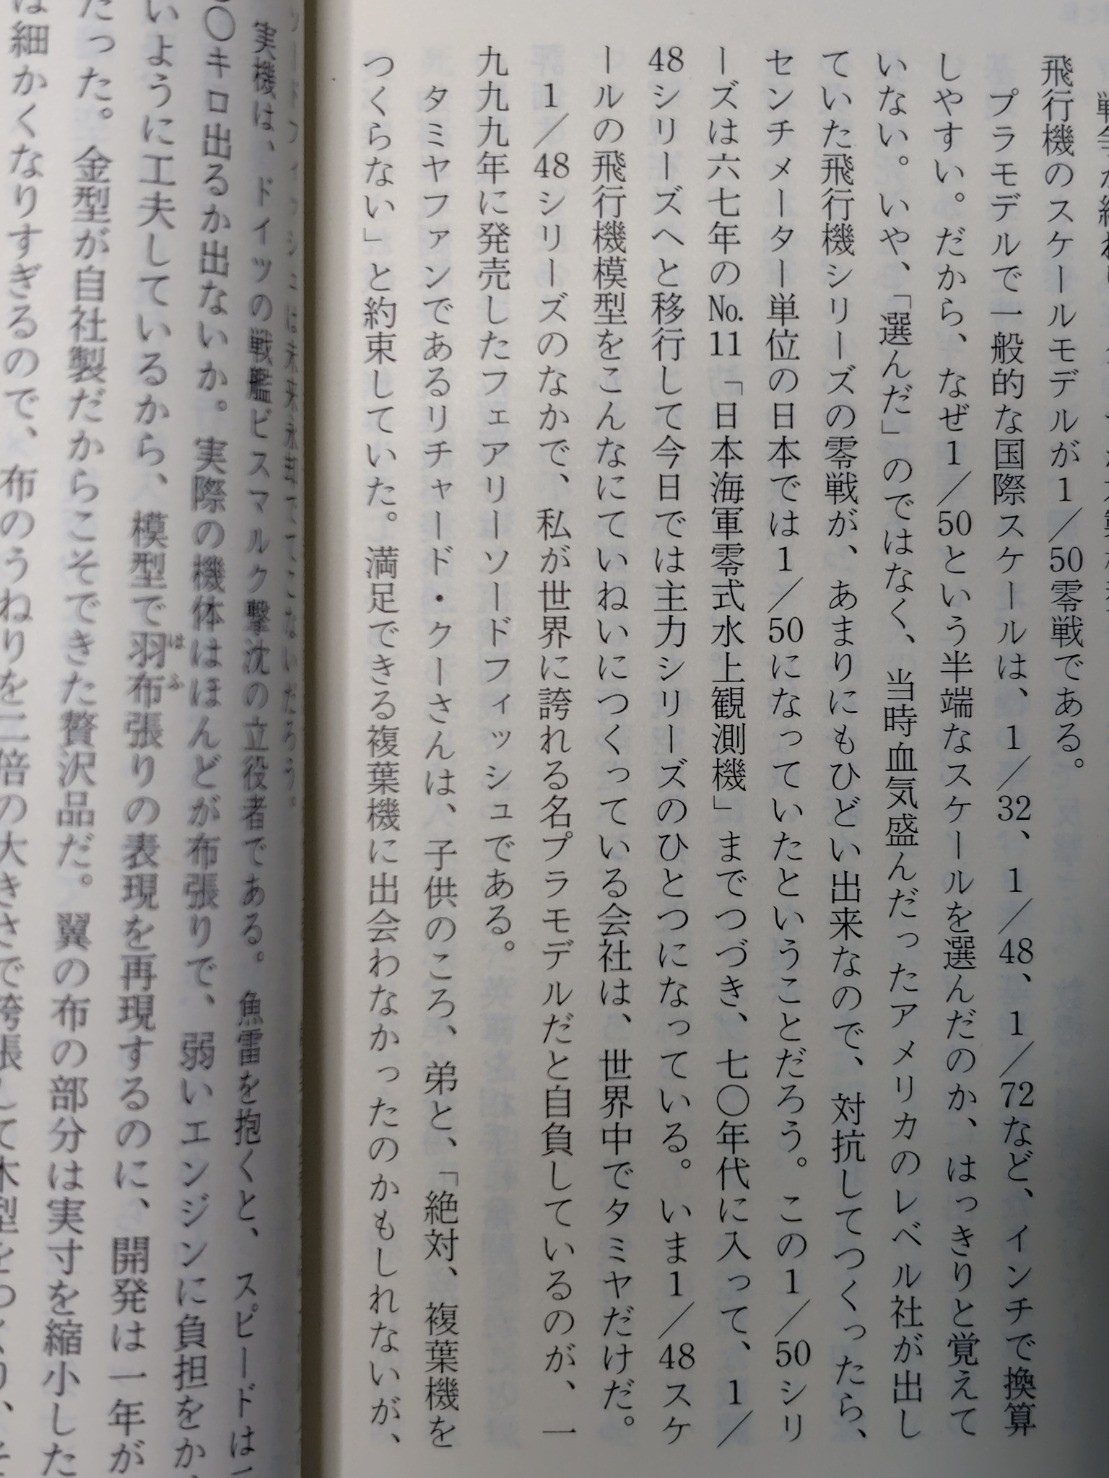 飛行機のスケールモデルが1／50零戦である。
プラモデルで一般的な国際スケールは、1／32、1／48、1／72など、インチで換算
しやすい。だから、なぜ1／50という半端なスケールを選んだのか、はっきりと覚えて
いない。いや、「選んだ」のではなく、当時血気盛んだったアメリカのレベル社が出し
ていた飛行機シリーズの零戦が、あまりにもひどい出来なので、対抗してつくったら、
センチメーター単位の日本では1／50になっていたということだろう。この1／50シリ
ーズは六七年の№11「日本海軍零式水上観測機」までつづき、七〇年代に入って、1／
48シリーズへと移行して今日では主力シリーズのひとつになっている。いま1／48スケ
ールの飛行機模型をこんなにていねいにつくっている会社は、世界中でタミヤだけだ。
1／48シリーズのなかで、私が世界に誇れる名プラモデルだと自負しているのが、一
九九九年に発売したフェアリーソードフィッシュである。
タミヤファンであるリチャード・クーさんは、子供のころ、弟と、「絶対、複葉機を
つくらない」と約束していた。満足できる複葉機に出会わなかったのかもしれないが、
ソードフィッシュは未来永劫でてこないだろう。
実機は、ドイツの戦艦ビスマルク撃沈の立役者である。魚雷を抱くと、スピードは
〇キロ出るか出ないか。実際の機体はほんどが布張りで、弱いエンジンに負担をか
いように工夫しているから、模型で羽布張りの表現を再現するのに、開発は一年が
たった。金型が自社製だからこそできた贅沢品だ。翼の布の部分は実寸を縮小した
は細かくなりすぎるので、布のうねりを二倍の大きさで誇張して木型をつくり、そ